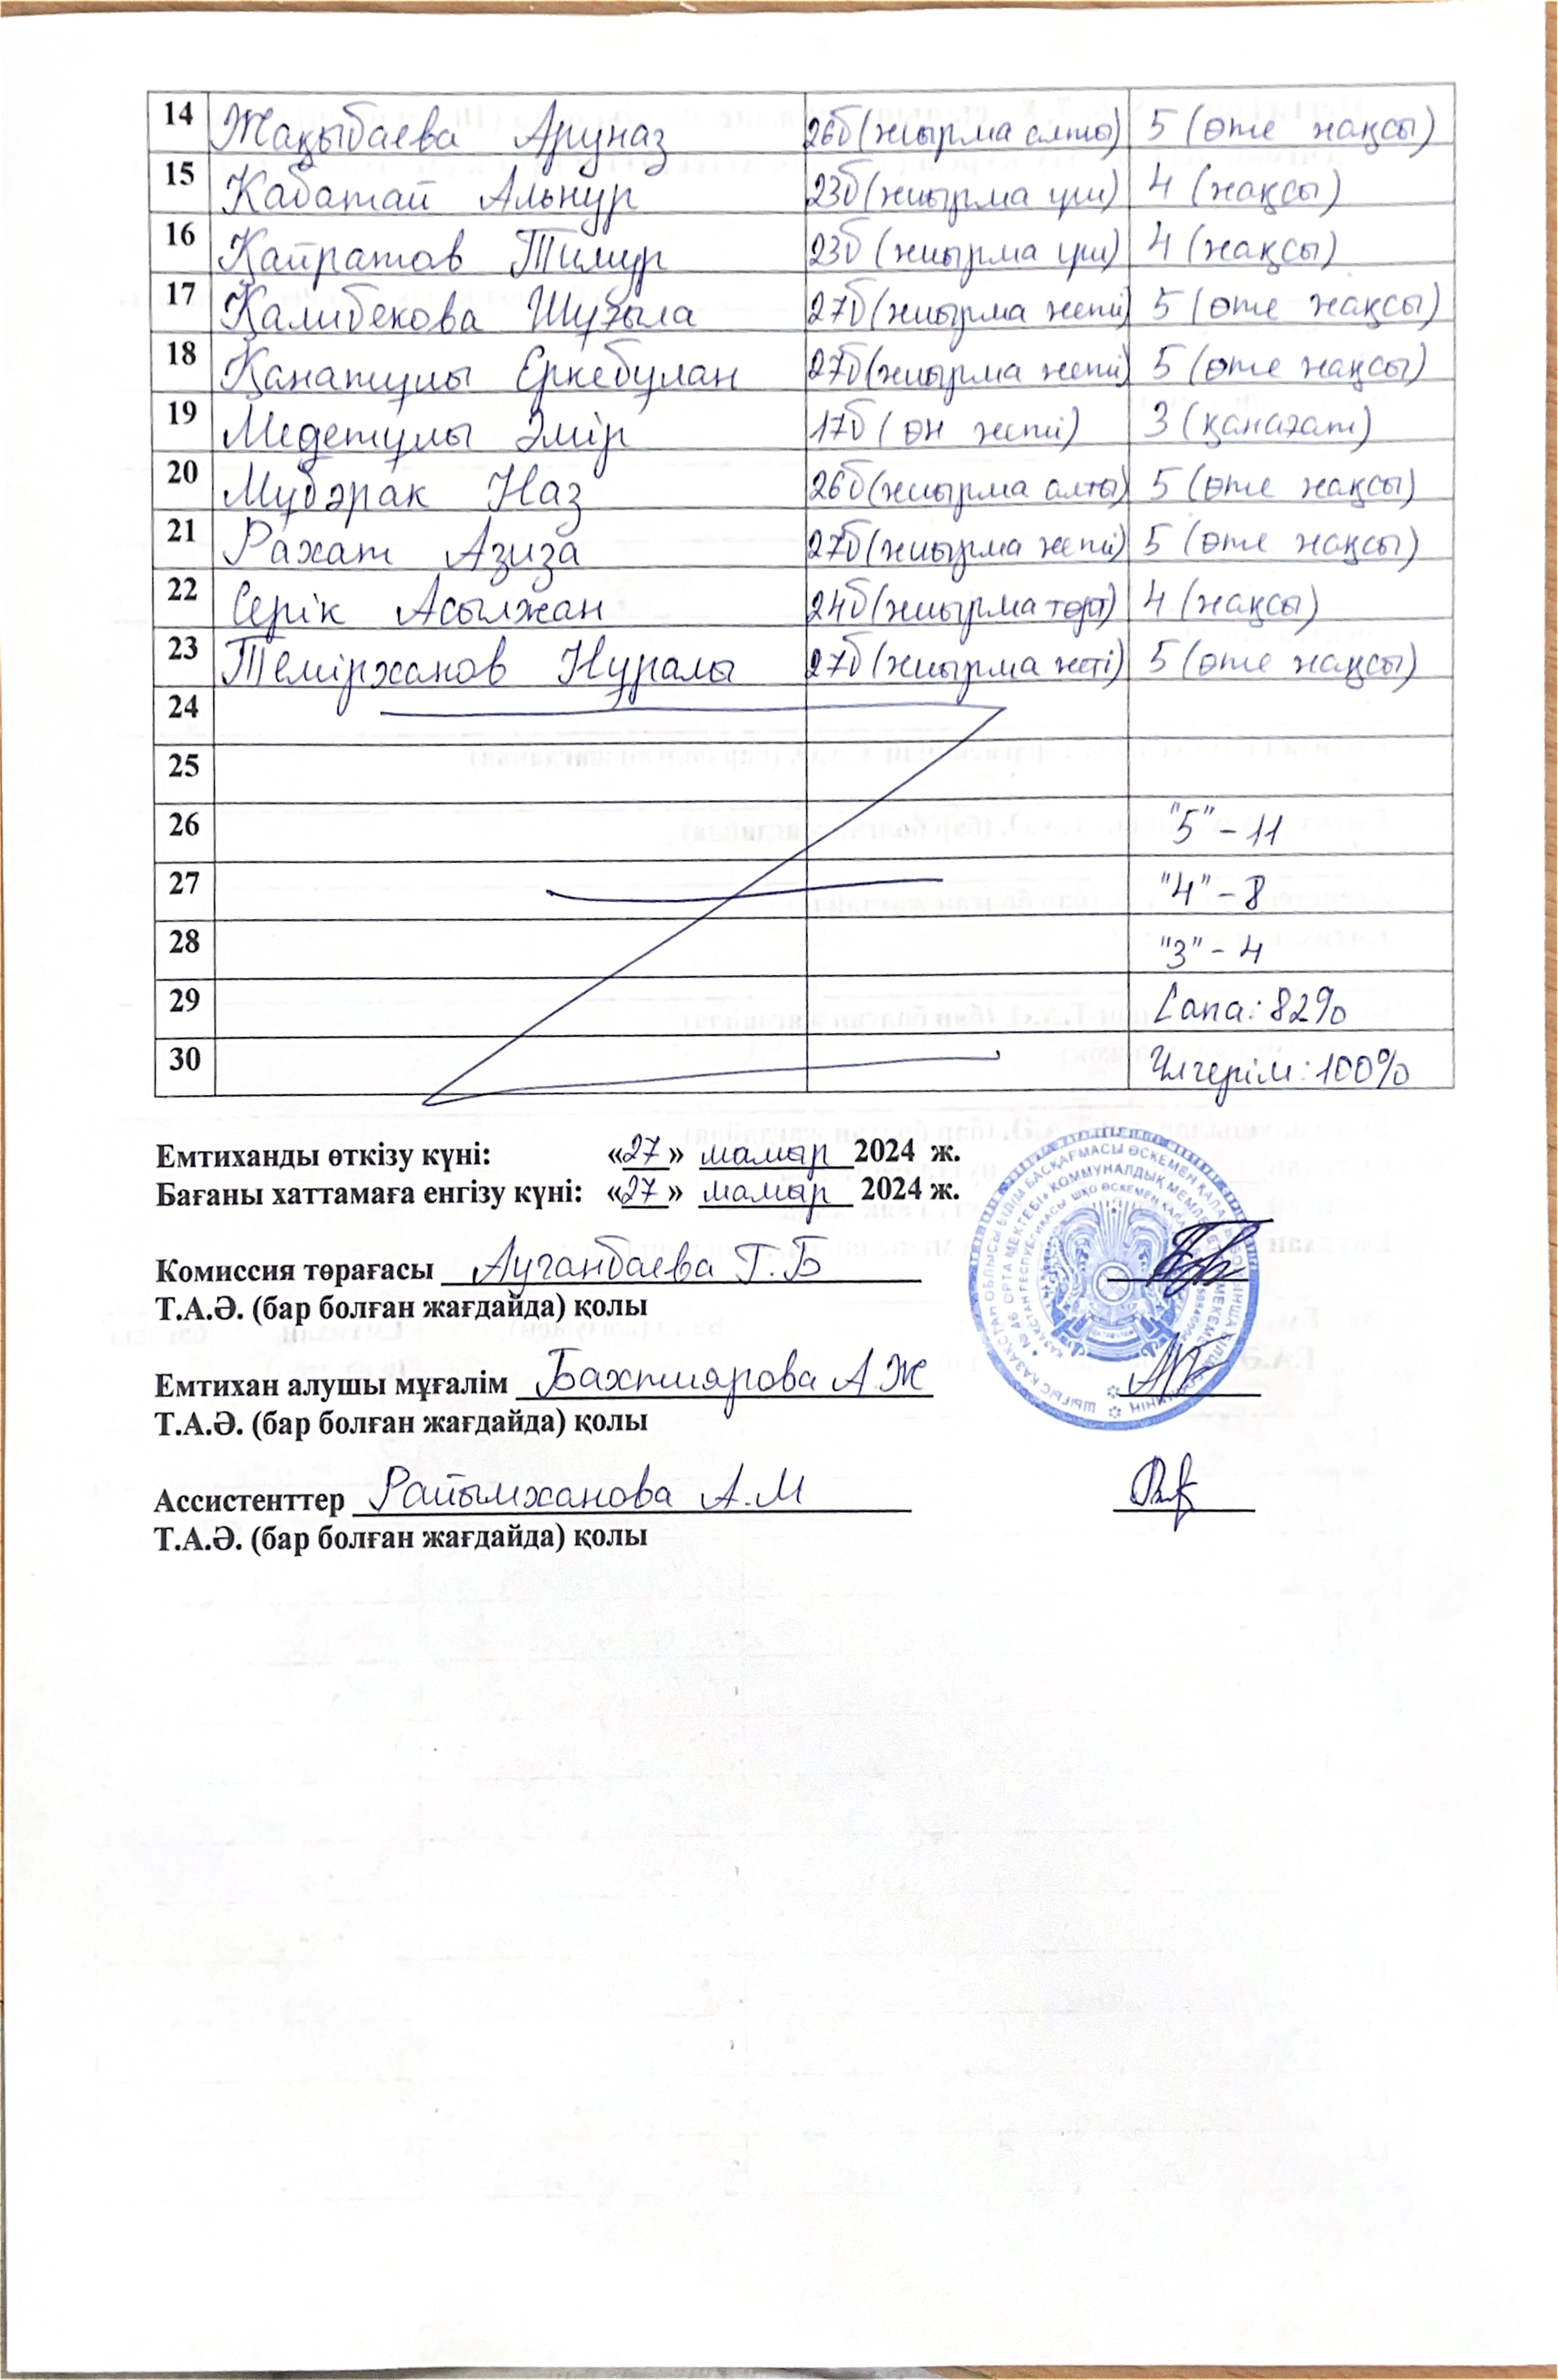 14 Жақыбаева Аруназ 26б (жиырма алты) 5 (өте жақсы)
15 Кабатай Альнур 23б (жиырма үш) 4 (жақсы)
16 Қайратов Тимур 23б (жиырма үш) 4 (жақсы)
17 Қалибекова Шұғыла 27б (жиырма жеті) 5 (өте жақсы)
18 Қанатұлы Еркебулан 27б (жиырма жеті) 5 (өте жақсы)
19 Медетұлы Әмір 17б (он жеті) 3 (қанағат)
20 Мүбәрак Наз 26б (жиырма алты) 5 (өте жақсы)
21 Рахат Азиза 27б (жиырма жеті) 5 (өте жақсы)
22 Серік Асылжан 24б (жиырма төрт) 4 (жақсы)
23 Темірханов Нұралы 27б (жиырма жеті) 5 (өте жақсы)
24
25
26 "5" - 11
27 "4" - 8
28 "3" - 4
29 Сапа: 82%
30 Үлгерім: 100%
Емтиханды өткізу күні: «27» мамыр 2024 ж.
Бағаны хаттамаға енгізу күні: «27» мамыр 2024 ж.
Комиссия төрағасы Ауганбаева Г.Б
Т.А.Ә. (бар болған жағдайда) қолы
Емтихан алушы мұғалім Бахтиярова А.Ж
Т.А.Ә. (бар болған жағдайда) қолы
Ассистенттер Райымханова А.М
Т.А.Ә. (бар болған жағдайда) қолы